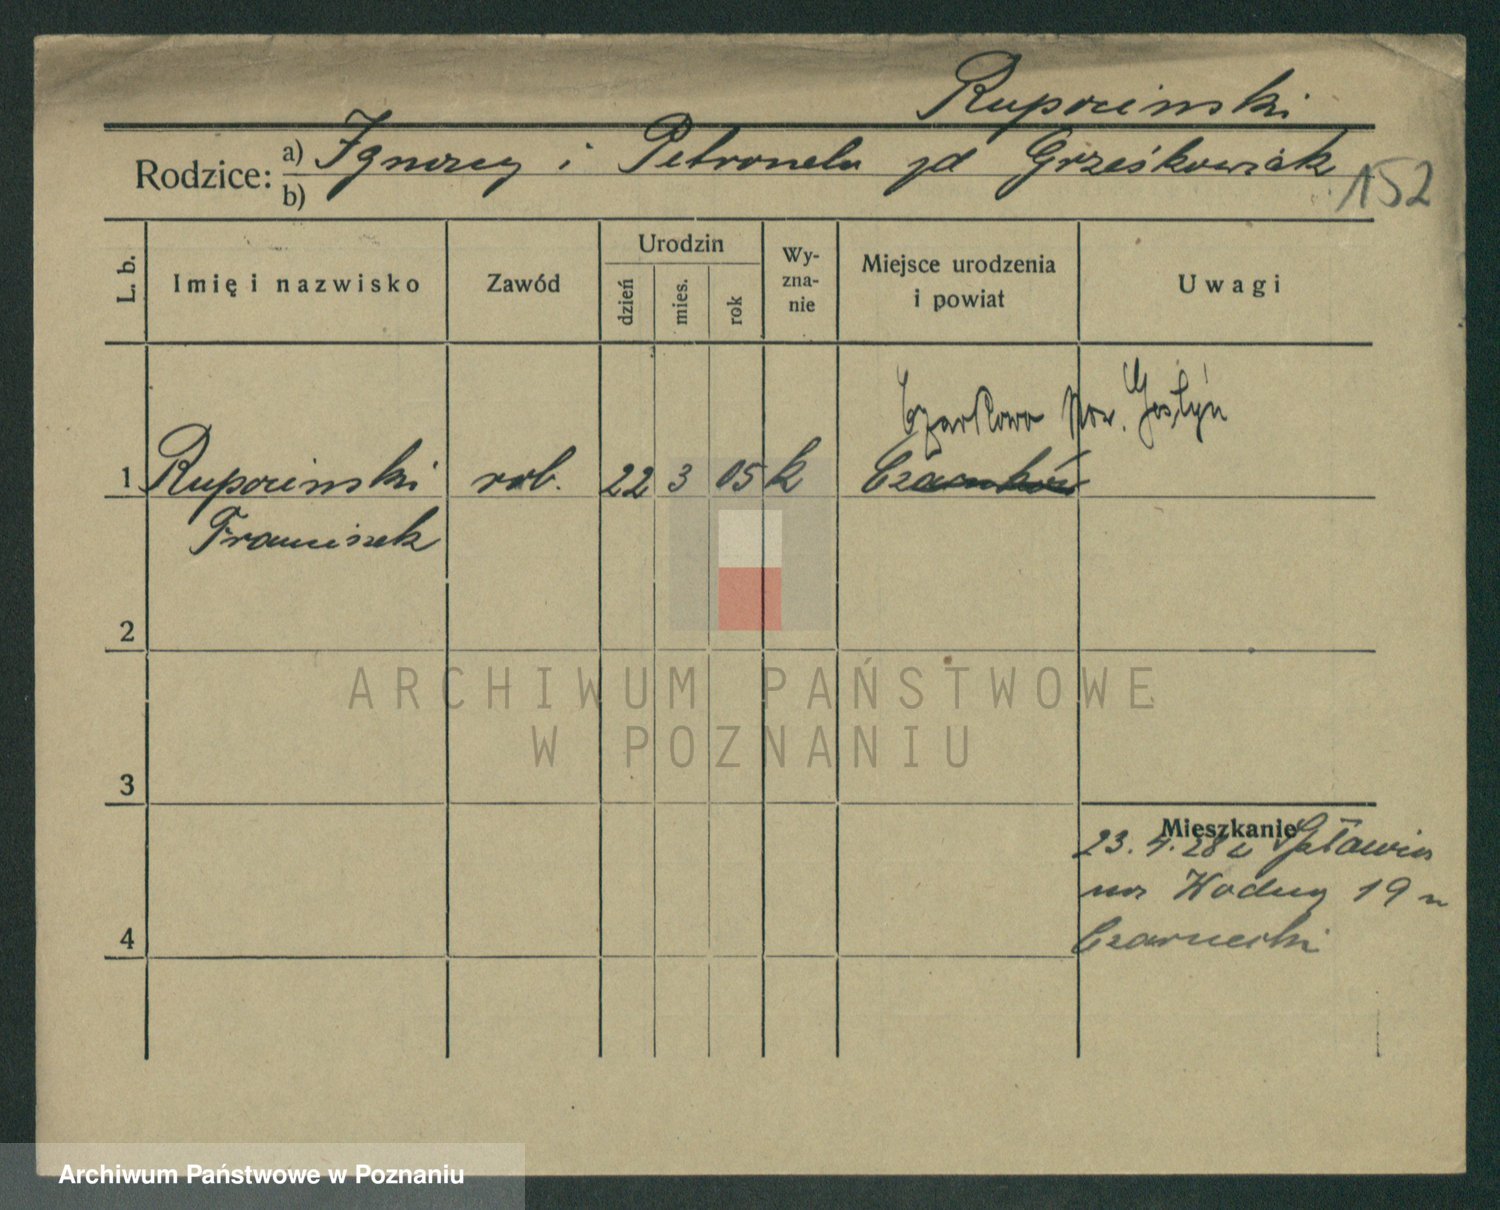 Rupocinski
Rodzice: a) Ignacy i Petronela zd Grześkowiak
b)
152
L. b.
Imię i nazwisko
Zawód
Urodzin
dzień
mies.
rok
Wy-
zna-
nie
Miejsce urodzenia
i powiat
Uwagi
Czarkowo pow. Gostyń
1 Rupocinski rob. 22 3 05 k
Franciszek
2
ARCHIWUM PAŃSTWOWE
W POZNANIU
3
Mieszkanie
23. 4. 28 z
19
4
Czarnecki
Archiwum Państwowe w Poznaniu